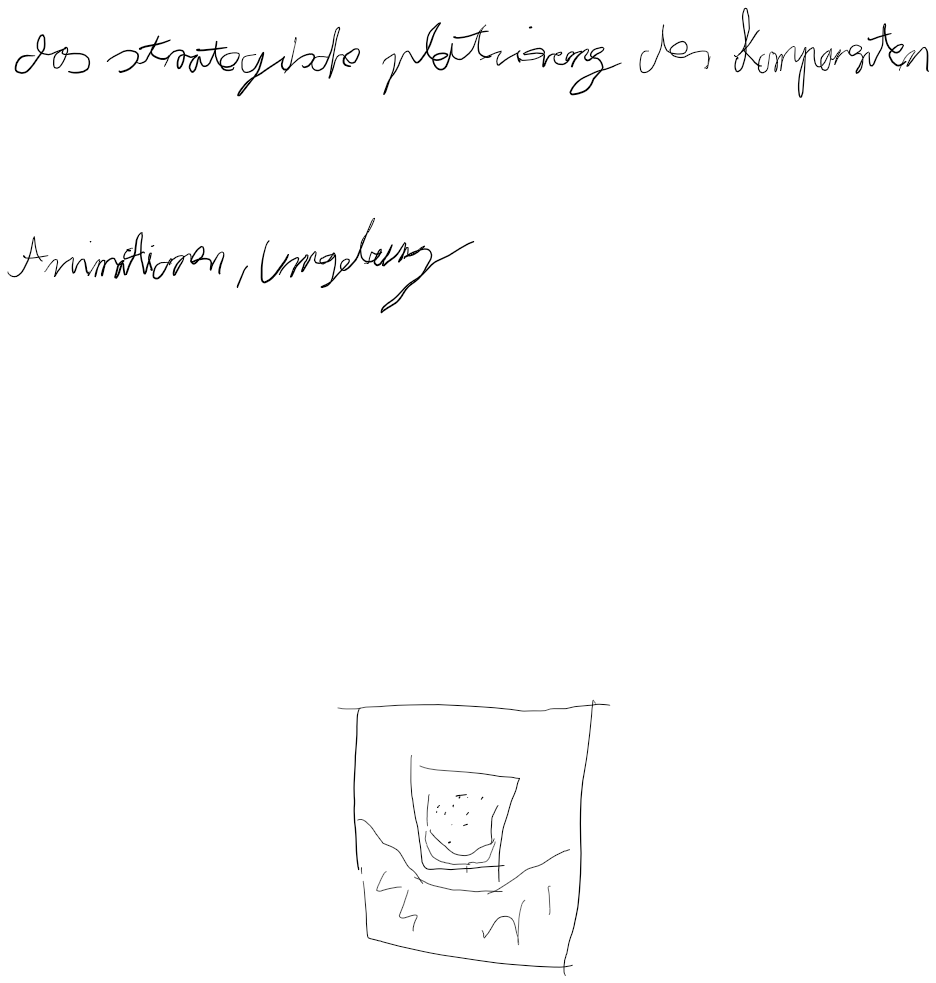 das strategische platzierung des Komparsten
Animationen, Umgebung